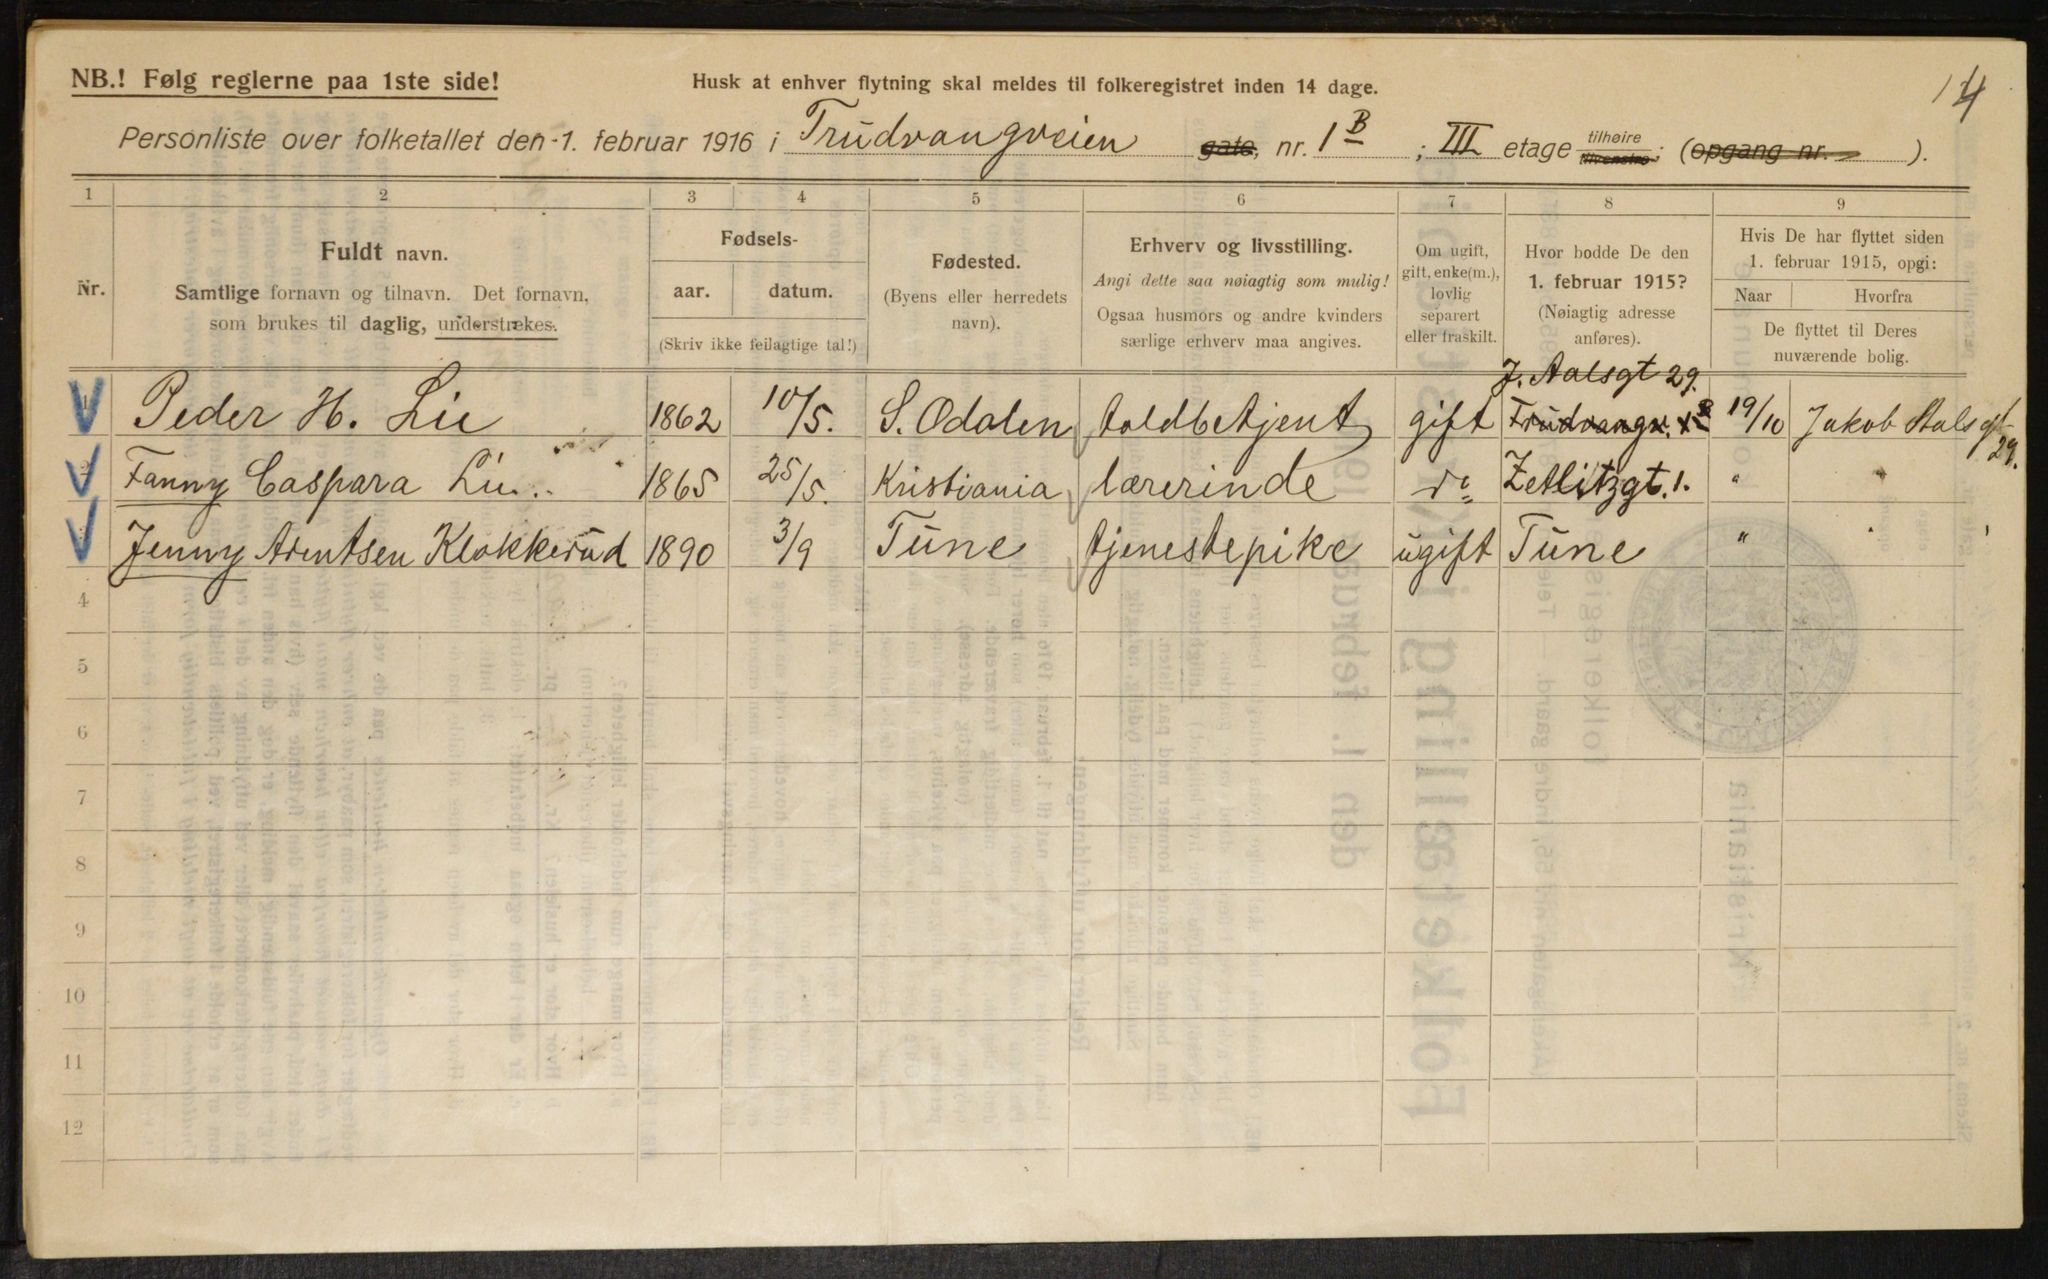 NB.! Følg reglerne paa 1ste side!
Husk at enhver flytning skal meldes til folkeregistret inden 14 dage.
14
Personliste over folketallet den 1. februar 1916 i Trudvangveien gate, nr. 1 B ; III etage tilhøire tilvenstre; (opgang nr. ).
1 2 3 4 5 6 7 8 9
Nr.
Fuldt navn.
Samtlige fornavn og tilnavn. Det fornavn,
som brukes til daglig, understrekes.
Fødsels-
aar. datum.
(Skriv ikke feilagtige tal!)
Fødested.
(Byens eller herredets
navn).
Erhverv og livsstilling.
Angi dette saa nøiagtig som mulig!
Ogsaa husmors og andre kvinders
særlige erhverv maa angives.
Om ugift,
gift, enke(m.),
lovlig
separert
eller fraskilt.
Hvor bodde De den
1. februar 1915?
(Nøiagtig adresse
anføres).
Hvis De har flyttet siden
1. februar 1915, opgi:
Naar Hvorfra
De flyttet til Deres
nuværende bolig.
J. Aalsgt 29.
1 Peder H. Lie 1862 10/5. S. Odalen toldbetjent gift Trudvangv. 1 B 19/10 Jakob Aals gt 29.
2 Fanny Caspara Lie 1865 25/5. Kristiania lærerinde do Zetlitzgt. 1. " "
Jenny Arentsen Klokkerud 1890 3/9 Tune tjenestepike ugift Tune " "
4
5
6
7
8
9
10
11
12